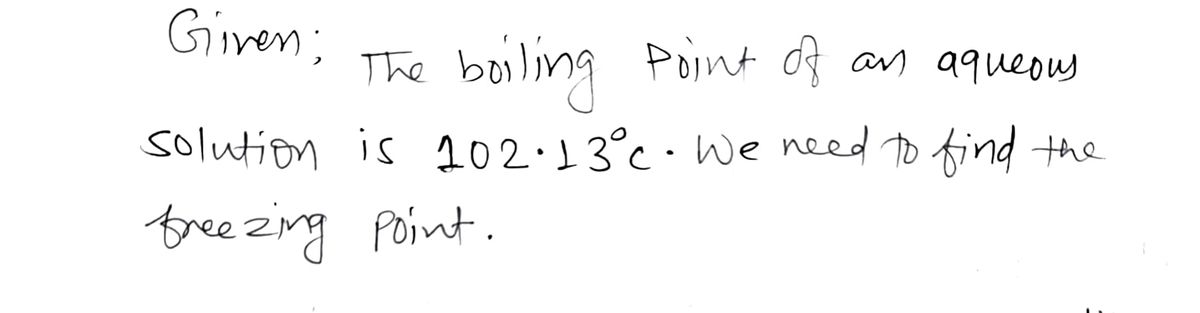 Given; The boiling point of an aqueous
solution is 102.13°c. We need to find the
freezing point.